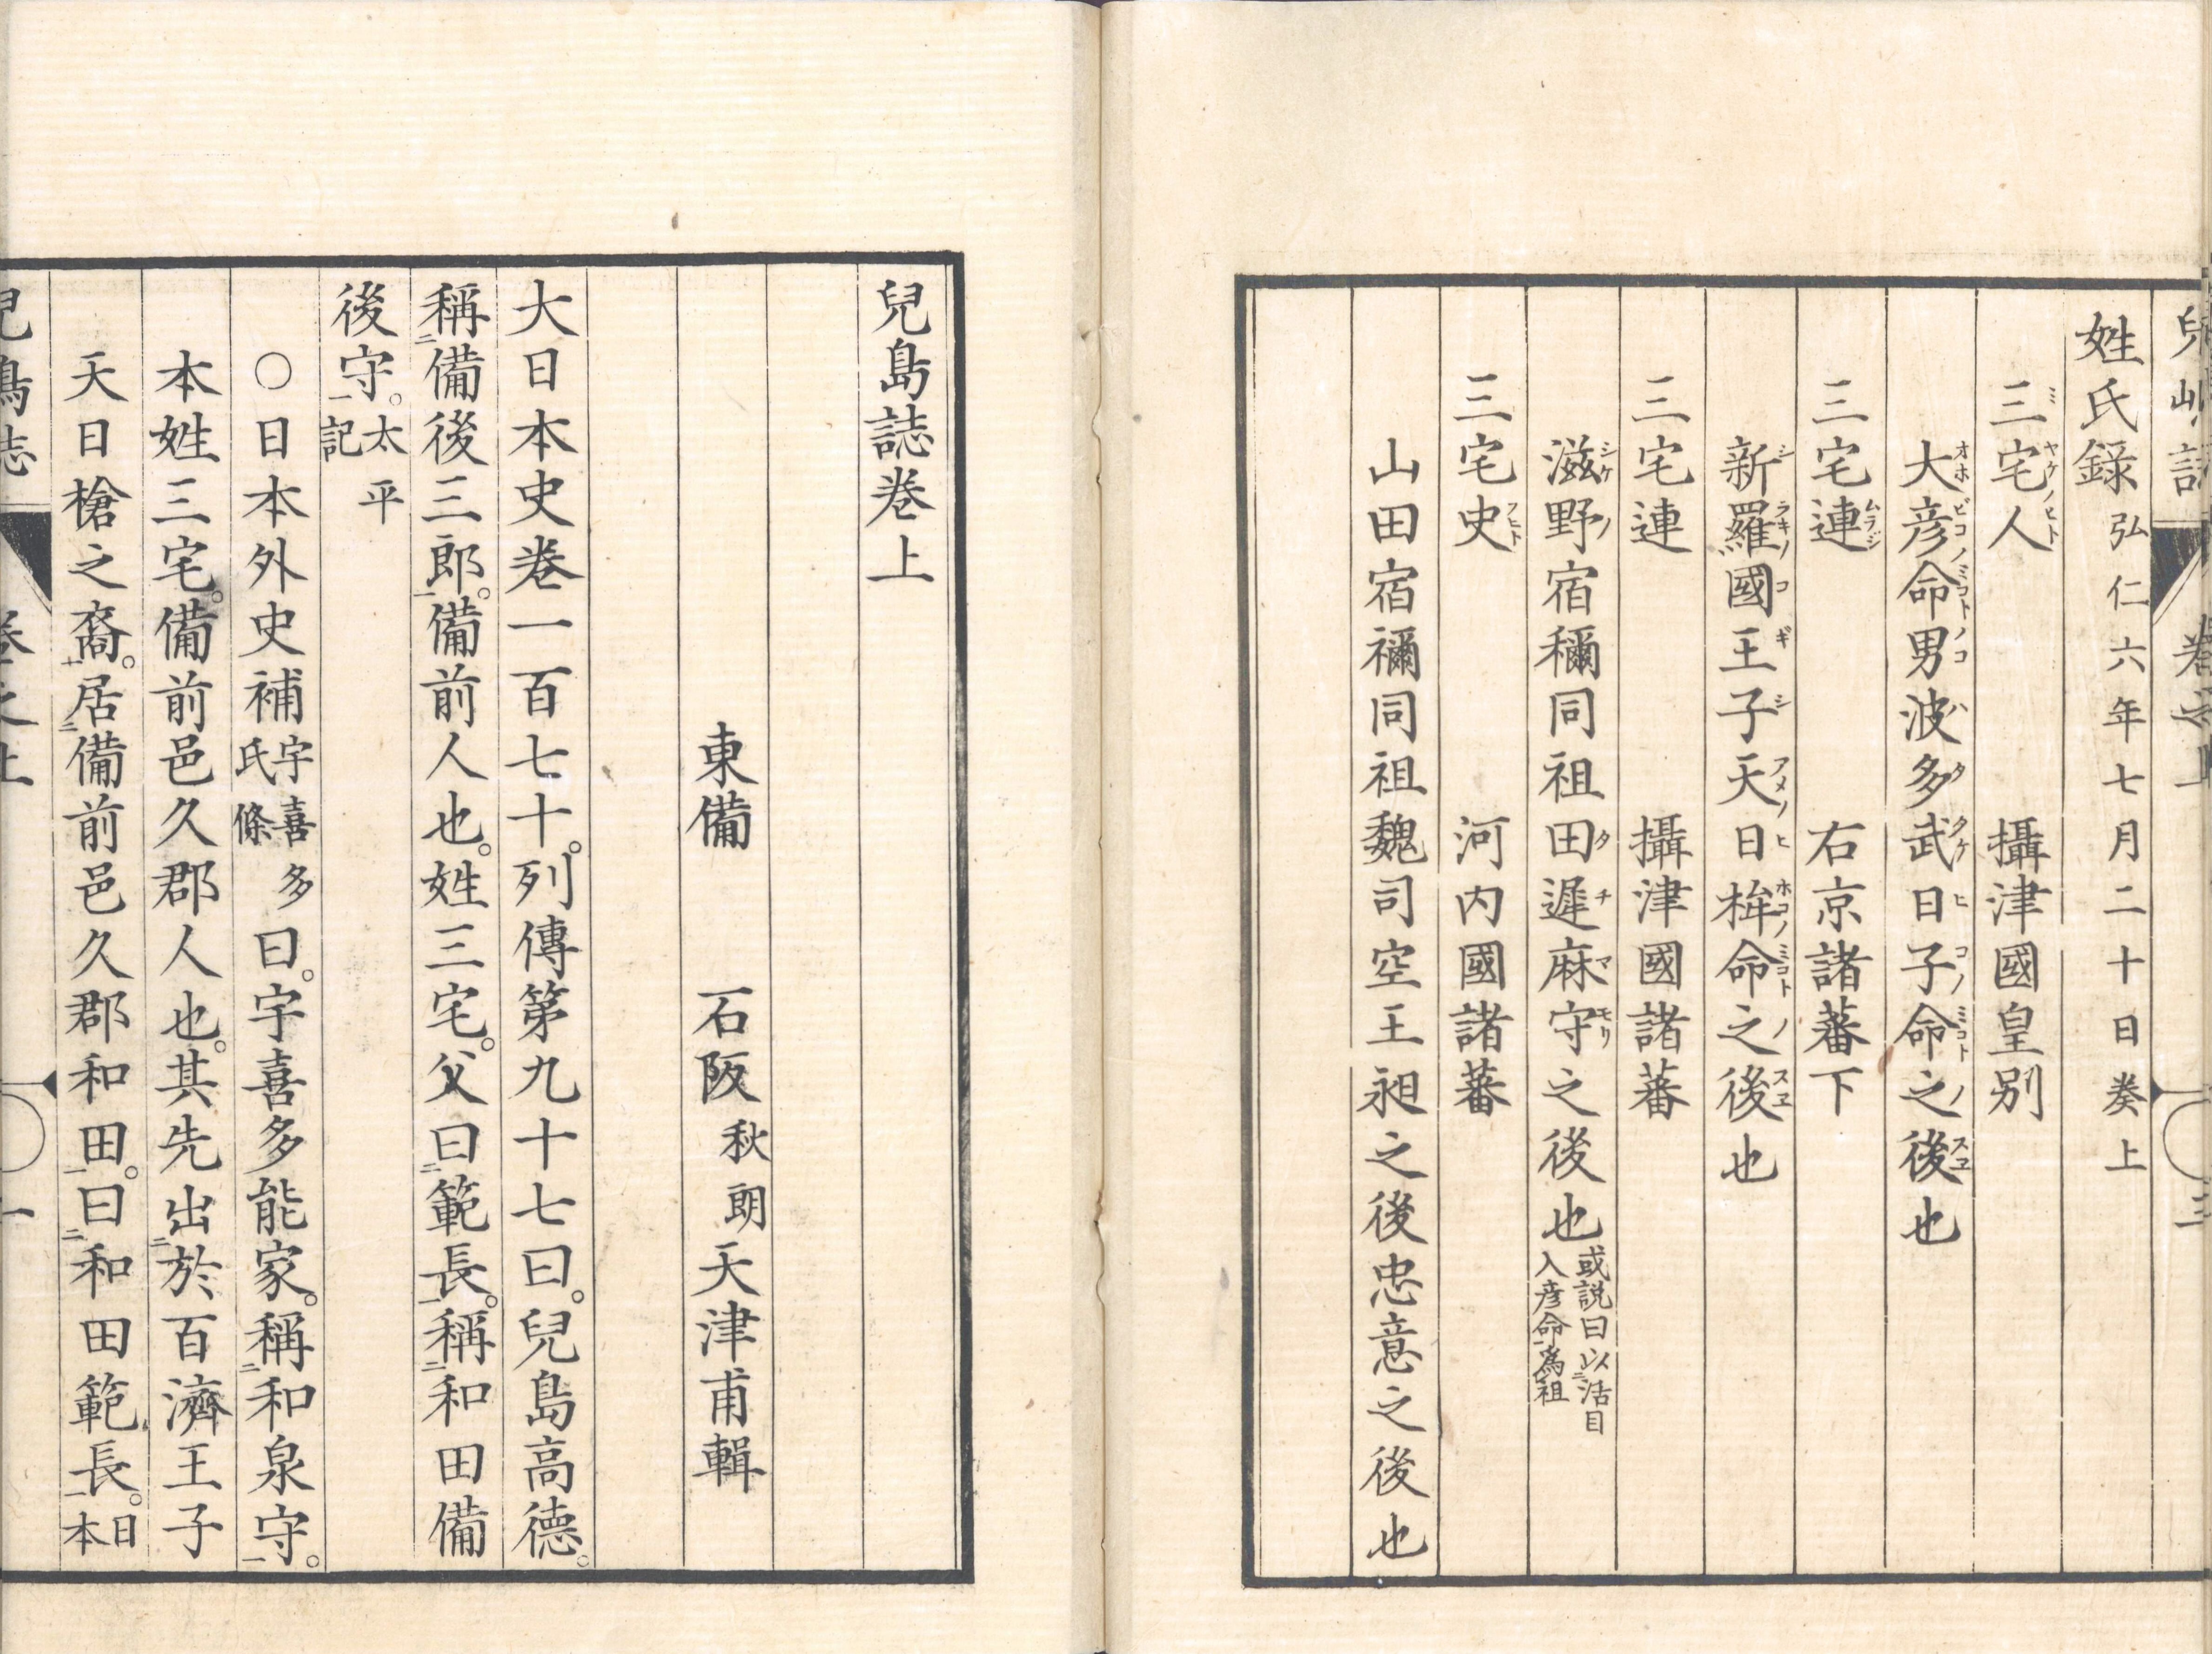 姓氏録弘仁六年七月二十日奏上
三宅人　攝津國皇別
大彦命男波多武日子命之後也
三宅連　右京諸蕃下
新羅國王子天日桙命之後也
三宅連　攝津國諸蕃
滋野宿禰同祖田遲麻守之後也或説曰以活目入彦命爲祖
三宅史　河内國諸蕃
山田宿禰同祖魏司空王昶之後忠意之後也
兒島誌巻上
東備　石阪秋朗天津甫輯
大日本史巻一百七十。列傳第九十七曰。兒島高德。
稱備後三郎。備前人也。姓三宅。父曰範長。稱和田備
後守。太平記
〇日本外史補宇喜多氏條曰。宇喜多能家。稱和泉守。
本姓三宅。備前邑久郡人也。其先出於百濟王子
天日槍之裔。居備前邑久郡和田。曰和田範長。日本
兒島誌　巻之上　一